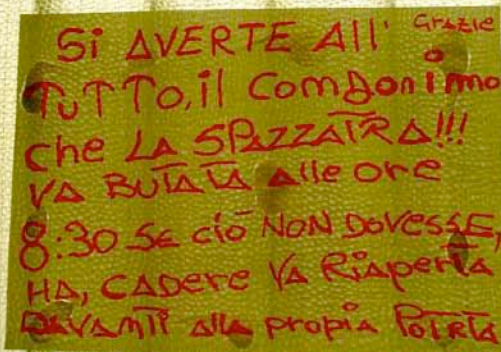 Si AVERTE All' Grazie
TUTTO, il Comdonimo
che LA SPAZZATRA!!!
VA BUTATA alle ore
8:30 SE ciò NON DOVESSE,
HA, CADERE VA RiAPERTA
DAVAMTI alla propia POTRTA